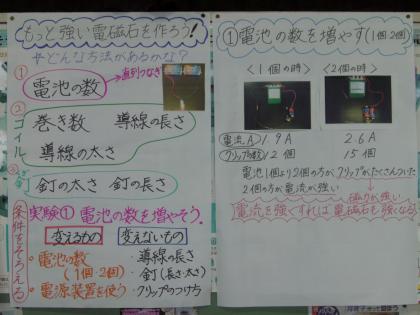 もっと強い電磁石を作ろう!
☆どんな方法があるかな?
① 電池の数
直列つなぎ
② コイル
巻き数 導線の長さ
導線の太さ
釘の太さ 釘の長さ
条件をそろえる
実験① 電池の数を増やそう。
変えるもの 変えないもの
・電池の数
(1個・2個)
・電源装置を使う
・導線の長さ
・釘(長さ・太さ)
・クリップのつけ方
①電池の数を増やす(1個2個)
<1個の時> <2個の時>
電流A 1.9A 2.6A
クリップの数 12個 15個
電池1個より2個の方がクリップがたくさんついた
2個の方が電流が強い
磁力が強い
電流を強くすれば電磁石も強くなる